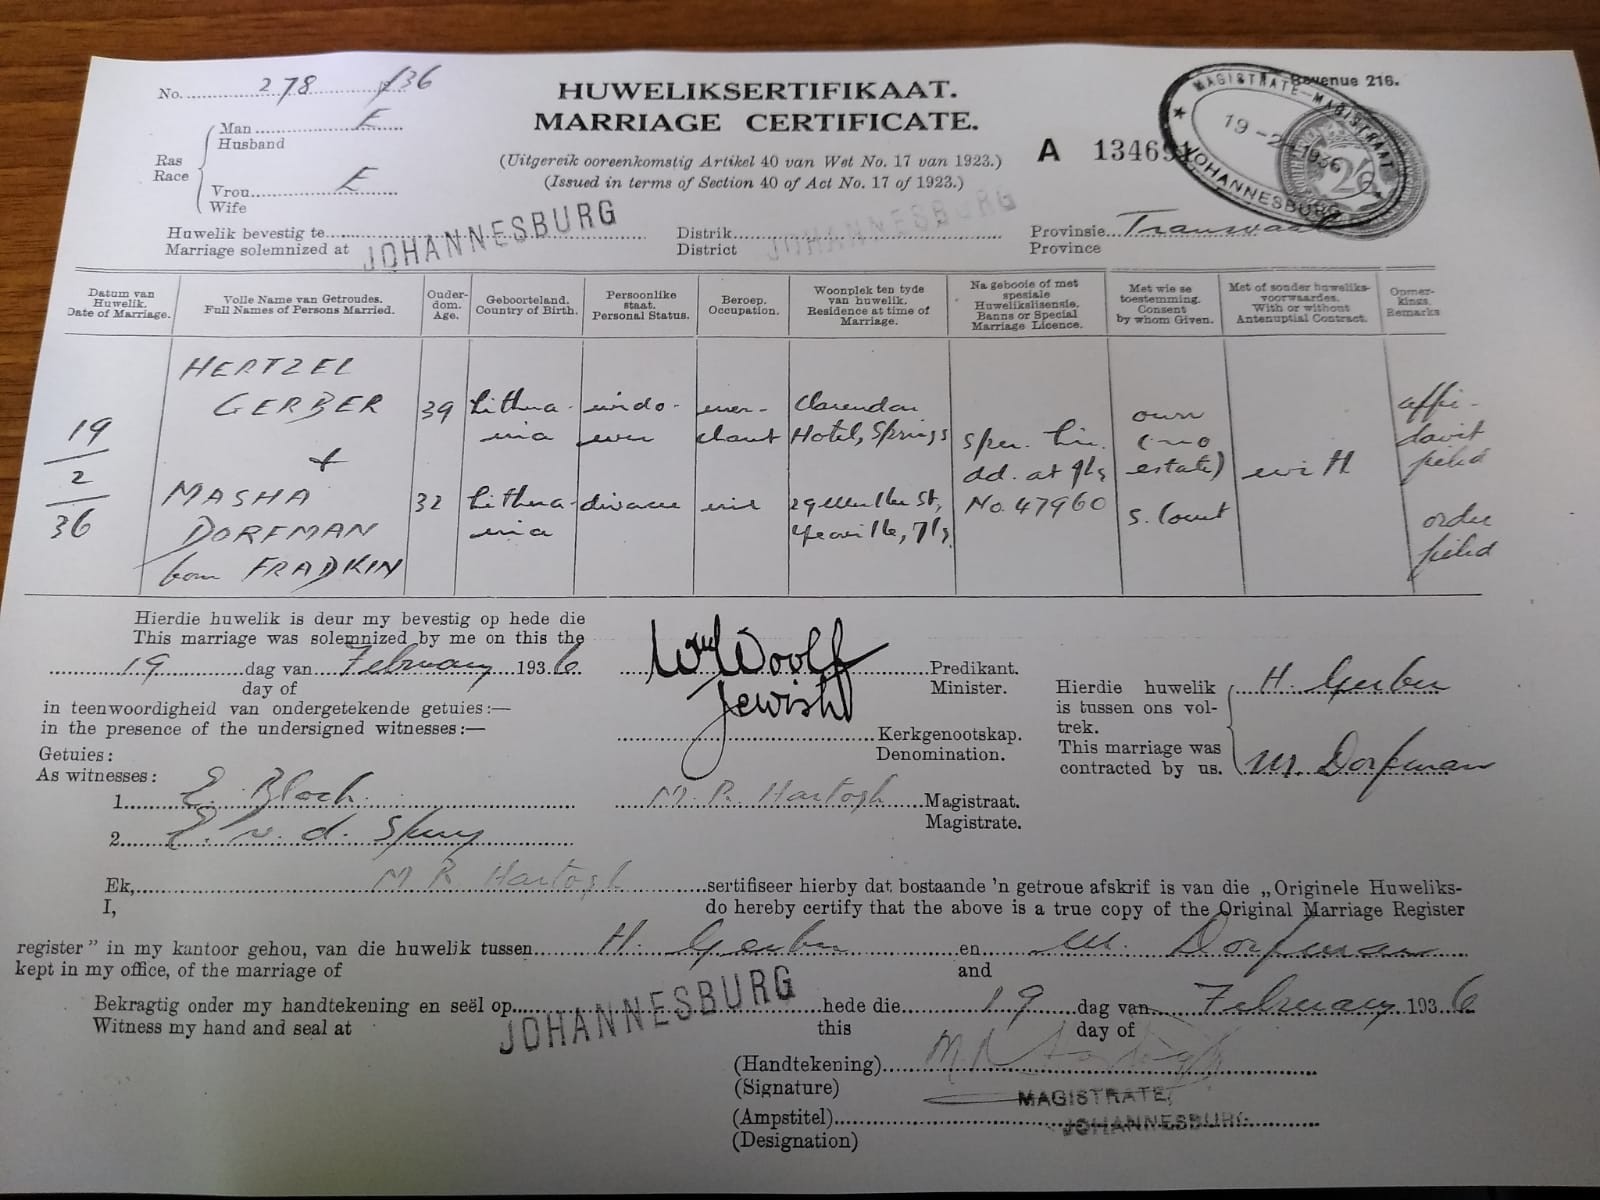 No. 278 /36
HUWELIKSERTIFIKAAT.
MARRIAGE CERTIFICATE.
(Uitgereik ooreenkomstig Artikel 40 van Wet No. 17 van 1923.)
(Issued in terms of Section 40 of Act No. 17 of 1923.)
Revenue 216.
A 13469
MAGISTRATE—MAGISTRAAT
19 -2 1936
JOHANNESBURG
2/6
Ras
Race
Man E
Husband
Vrou E
Wife
Huwelik bevestig te
Marriage solemnized at JOHANNESBURG
Distrik
District JOHANNESBURG
Provinsie Transvaal
Province
Datum van Huwelik. Date of Marriage.
Volle Name van Getroudes. Full Names of Persons Married.
Ouderdom. Age.
Geboorteland. Country of Birth.
Persoonlike staat. Personal Status.
Beroep. Occupation.
Woonplek ten tyde van huwelik. Residence at time of Marriage.
Na gebooie of met spesiale Huwelikslisensie. Banns or Special Marriage Licence.
Met wie se toestemming. Consent by whom Given.
Met of sonder huweliksvoorwaardes. With or without Antenuptial Contract.
Opmerkings. Remarks
19/2/36
HERTZEL
GERBER 39 Lithuania widower merchant Clarendon Hotel, Springs
+
MASHA
DORFMAN
born FRADKIN
32 Lithuania divorcee St, Yeoville,
spec. lic.
dd. at
No. 47960
own
(no
estate)
S. Court
with
affidavit
filed
order
filed
Hierdie huwelik is deur my bevestig op hede die
This marriage was solemnized by me on this the
19 dag van February 1936
day of
in teenwoordigheid van ondergetekende getuies:—
in the presence of the undersigned witnesses:—
Getuies:
As witnesses:
1. E. Bloch
2. E. v. d.
Woolf Predikant.
Minister.
Jewish
Kerkgenootskap.
Denomination.
M. R. Hartogh Magistraat.
Magistrate.
Hierdie huwelik
is tussen ons voltrek.
This marriage was
contracted by us.
H. Gerber
M. Dorfman
Ek, M R Hartogh sertifiseer hierby dat bostaande 'n getroue afskrif is van die „Originele Huweliks-
I, do hereby certify that the above is a true copy of the Original Marriage Register
register” in my kantoor gehou, van die huwelik tussen H. Gerber en M. Dorfman
kept in my office, of the marriage of and
Bekragtig onder my handtekening en seël op JOHANNESBURG hede die 19 dag van February 1936
Witness my hand and seal at this day of
(Handtekening) M R Hartogh
(Signature)
MAGISTRATE,
(Ampstitel) JOHANNESBURG.
(Designation)